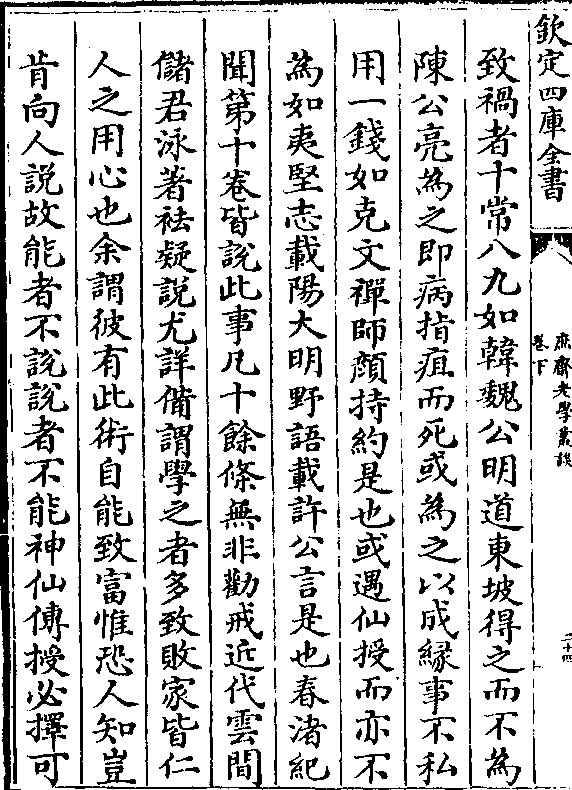 欽定四庫全書
庶齋老學叢談
卷下
二十四
致禍者十常八九如韓魏公明道東坡得之而不為
陳公亮為之即病指疽而死或為之以成緣事不私
用一錢如克文禪師顏持約是也或遇仙授而亦不
為如夷堅志載陽大明野語載許公言是也春渚紀
聞第十卷皆說此事凡十餘條無非勸戒近代雲間
儲君泳著祛疑說尤詳備謂學之者多致敗家皆仁
人之用心也余謂彼有此術自能致富惟恐人知豈
肯向人說故能者不說說者不能神仙傳授必擇可